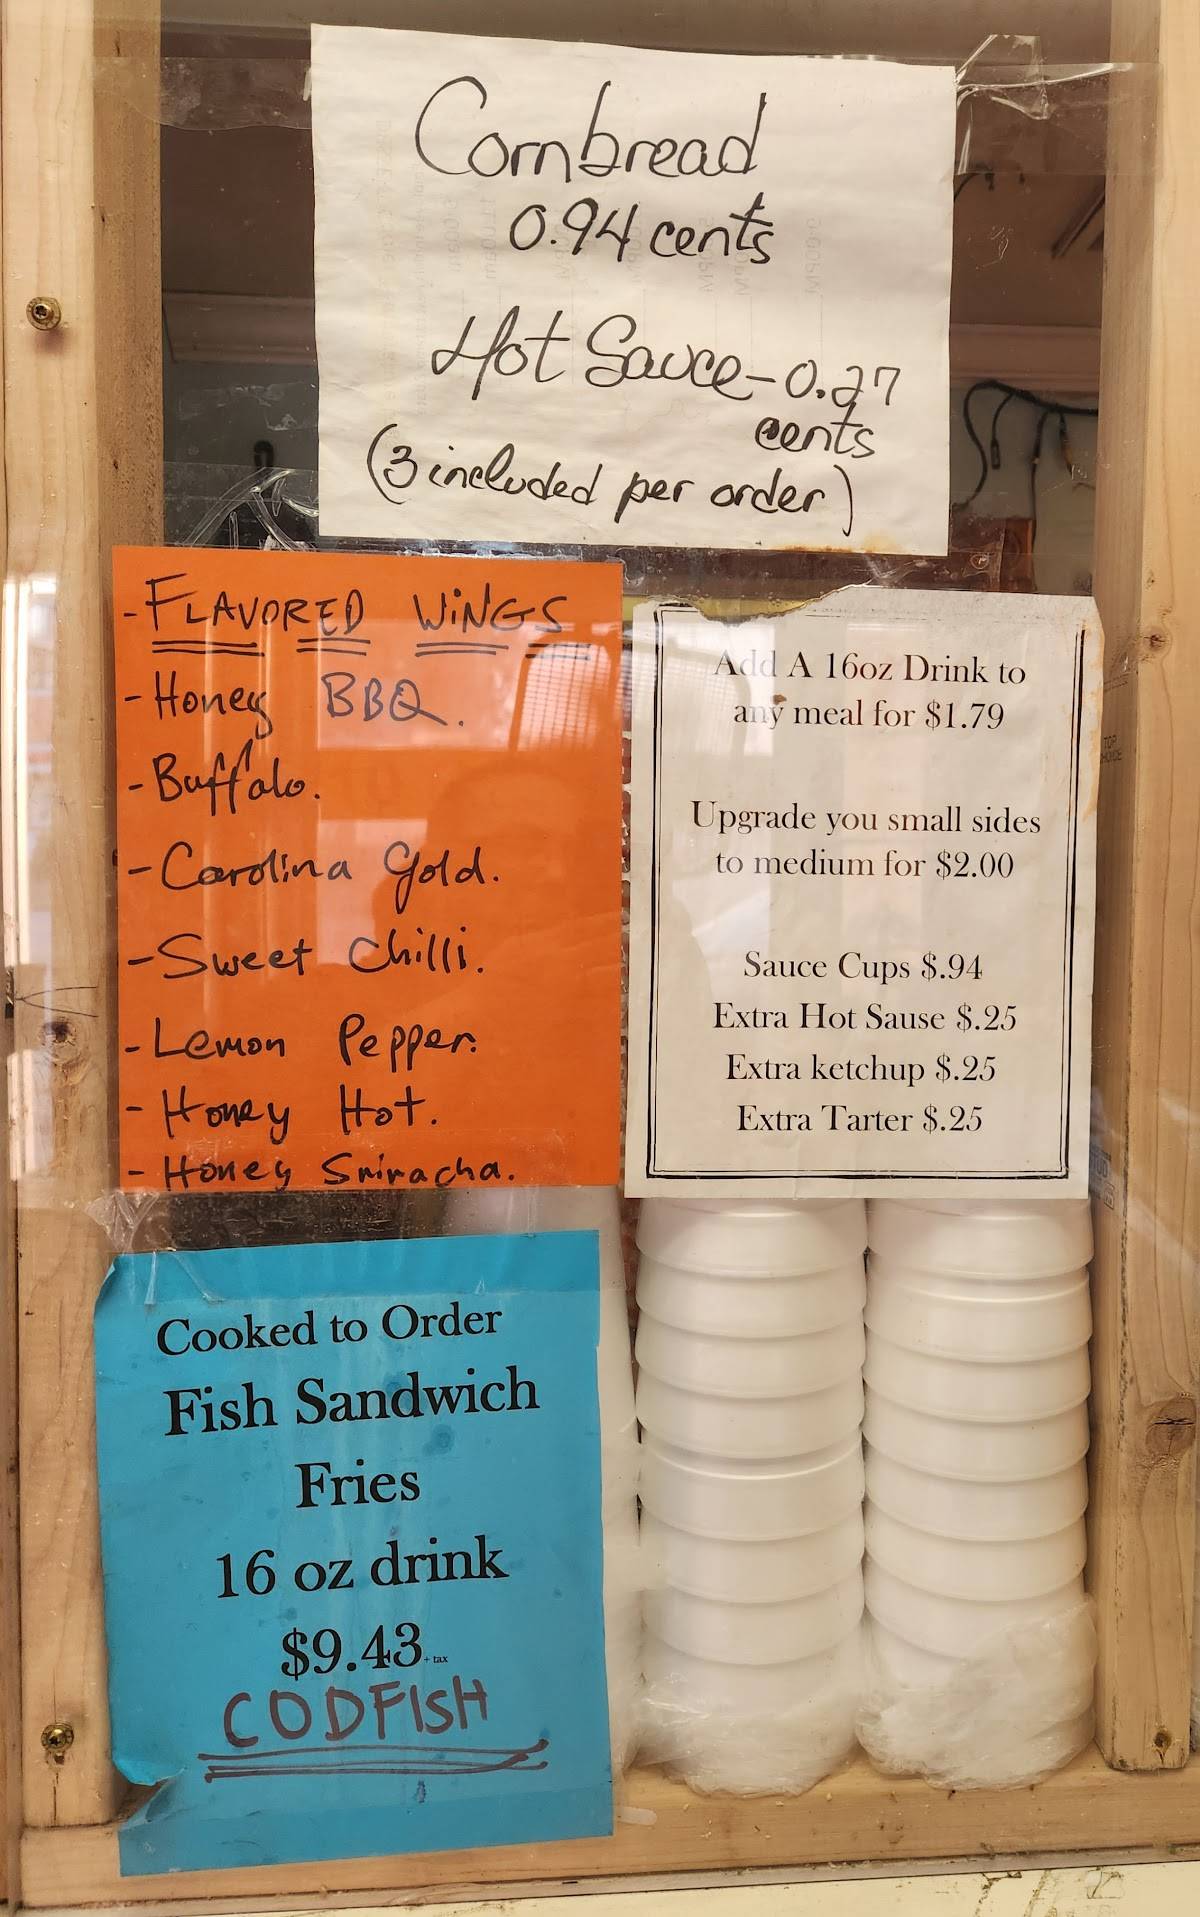 Cornbread
0.94 cents
Hot Sauce-0.27
cents
(3 included per order)
-FLAVORED WiNGS
-Honey BBQ.
-Buffalo.
-Carolina Gold.
-Sweet Chilli.
-Lemon Pepper.
-Honey Hot.
-Honey Sriracha.
Add A 16oz Drink to
any meal for $1.79
Upgrade you small sides
to medium for $2.00
Sauce Cups $.94
Extra Hot Sause $.25
Extra ketchup $.25
Extra Tarter $.25
Cooked to Order
Fish Sandwich
Fries
16 oz drink
$9.43 + tax
CODFISH